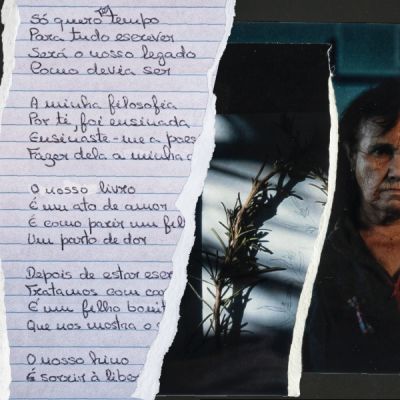 Só quero ter tempo
Para tudo escrever
Será o nosso legado
Como devia ser
A minha filosofia
Por ti foi ensinada
Ensinaste-me a poes
Fazer dela a minha
O nosso livro
É um ato de amor
É como parir um fil
Um parto de dor
Depois de estar escr
Tratamos com car
É um filho bonit
Que nos mostra o
O nosso hino
É sorrir à liber